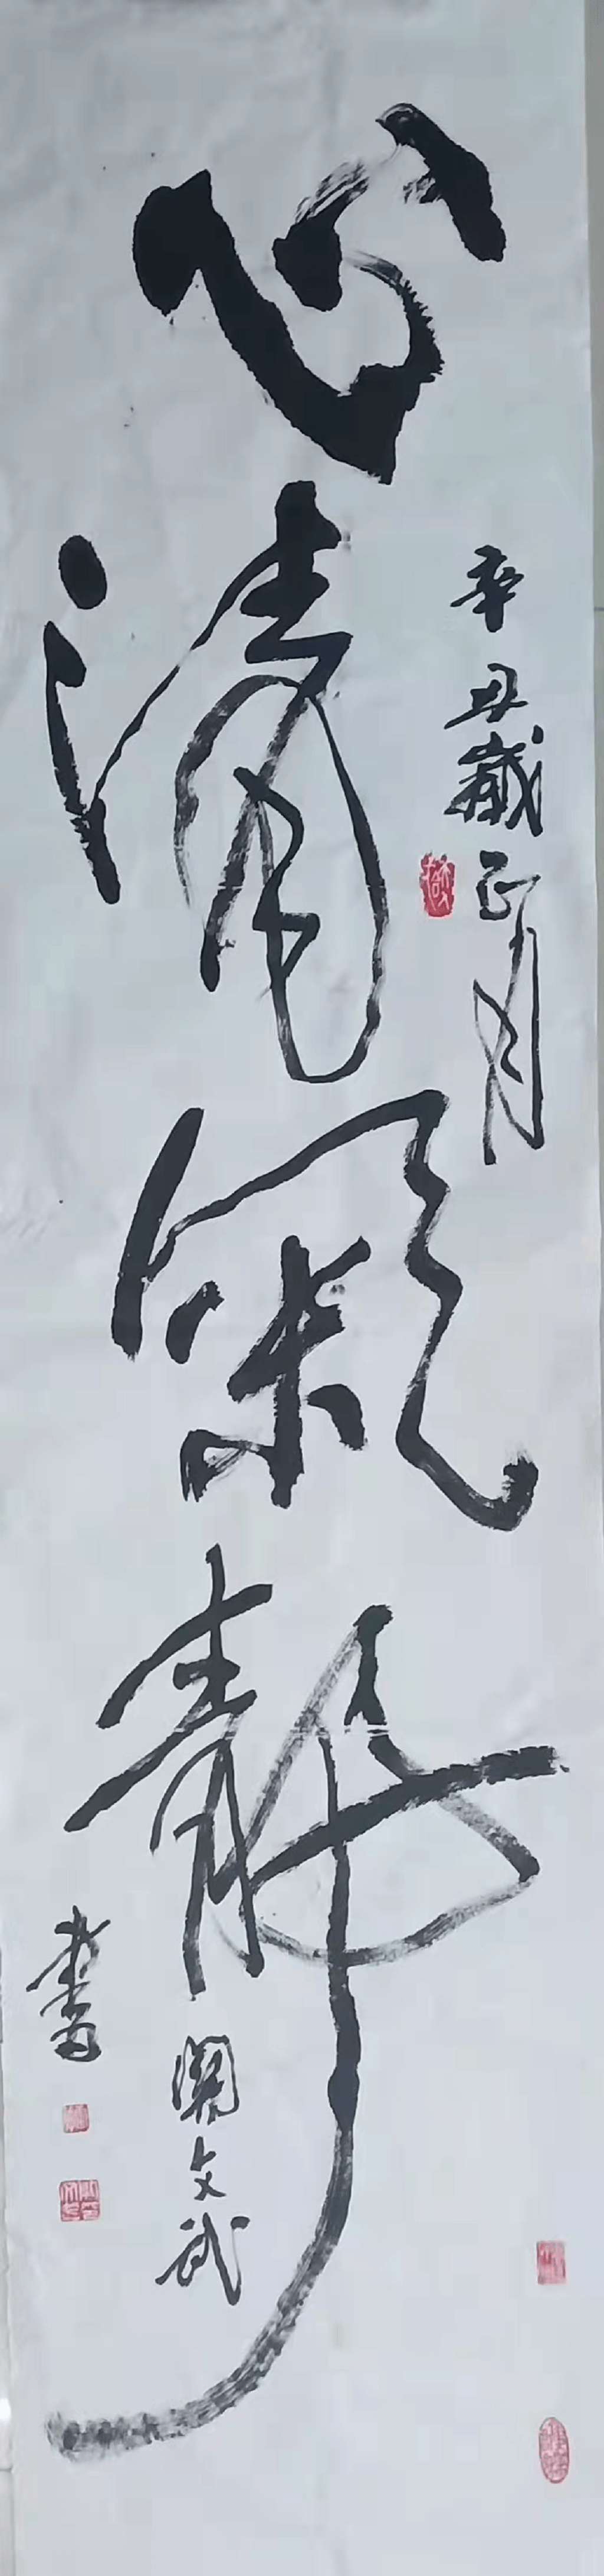 心清氣靜
辛丑歲正月
關文武
書